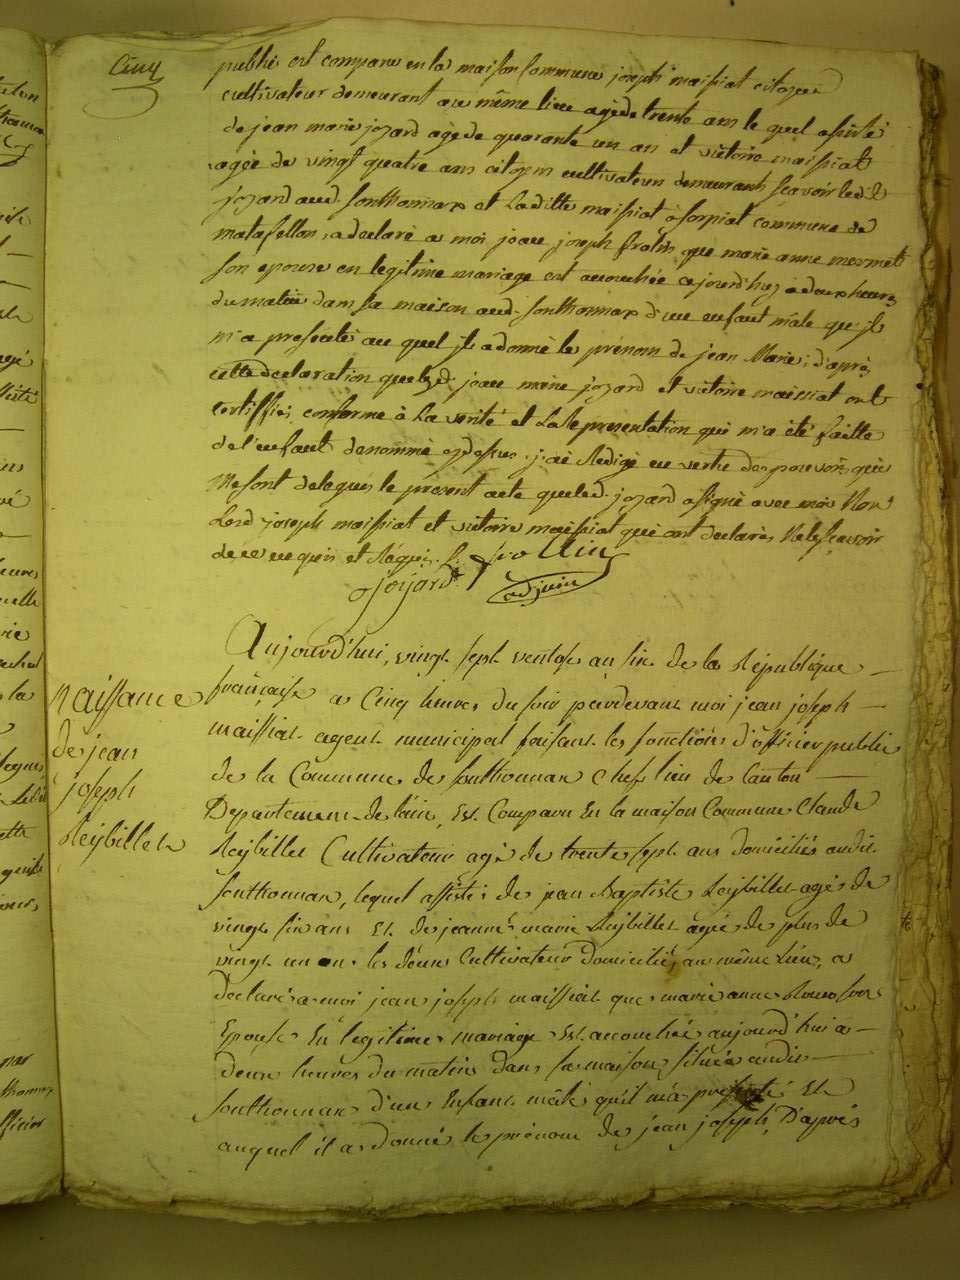 Cinq
publié est comparu en la maison Commune joseph maissiat citoyen
cultivateur demeurant au même lieu agé de trente ans le quel assisté
de jean marie jozard agé de quarante un an et victoire maissiat
agée de vingt quatre ans citoyens cultivateurs demeurants scavoir ledit
jozard aud. sonthonnax et Laditte maissiat à sorpiat commune de
matafellon, a declaré a moi jean joseph frollin que marie anne mermet
son epouse en legitime mariage est accouchée ajourd'huy a deux heures
du matin dans sa maison aud. sonthonnax d'un enfant mâle qu'il
m'a presenté au quel il a donné le prénom de jean Marie; d'après
cette declaration queled. jean marie jozard et victoire maissiat ont
certiffiée conforme à La verité et La Representation qui m'a été faitte
de l'enfant denommé cydessus. j'ai Redigé en vertu des pouvoirs qui
me sont delegués le présent acte queled. jozard a signé avec moi Non
Led. joseph maissiat et victoire maissiat qui ont declarés Ne le scavoir
de ce enquis et Réquis.
Jozard frollin
adjoin
Naissance
de jean
joseph
Reybillet
Aujourd'hui, vingt sept ventose an six de la République
française a Cinq heures du soir pardevant moi jean joseph
maissiat agent municipal faisant les fonctions d'officier public
de la Commune de sonthonnax chef lieu de Canton
Departement de l'ain, Est Comparu En la maison Commune Claude
Reybillet Cultivateur agé de trente sept ans domiciliés audit
sonthonnax, lequel assisté de jean Baptiste Reybillet agé de
vingt six ans Et de jeanne marie Reybillet agée de plus de
vingt un an les deux Cultivateurs domiciliés au même Lieu, a
Declaré a moi jean joseph maissiat que marie anne
Epouse En legitime mariage Est accouchée aujourd'hui a
deux heures du matin dans sa maison située audit
sonthonnax d'un Enfant mâle qu'il m'a presenté Et
auquel il a donné le prénom de jean joseph, D'après